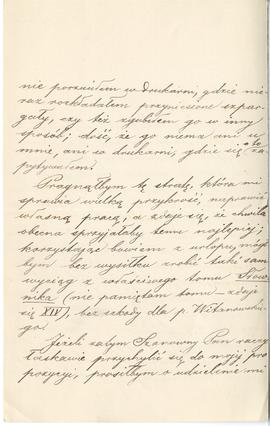 nie porzuciłem w drukarni, gdzie nie-
raz rozkładałem przyniesione szpar-
gały, czy też zgubiłem go w inny
sposób; dość, że go niema ani u
mnie, ani w drukarni, gdzie się o to za-
pytywałem.
Pragnąłbym tę stratę, która mi
sprawia wielką przykrość, naprawić
własną pracą, a zdaje się, że chwila
obecna sprzyjałaby temu najlepiej;
korzystając bowiem z urlopu, mógł-
bym bez wysiłku zrobić taki sam
wyciąg z właściwego tomu Słow-
nika (nie pamiętam tomu – zdaje
się XIV), bez szkody dla p. Witanowskie-
go.
Jeżeli zatym Szanowny Pan raczy
łaskawie przychylić się do mojej pro-
pozycji, prosiłbym o udzielenie mi